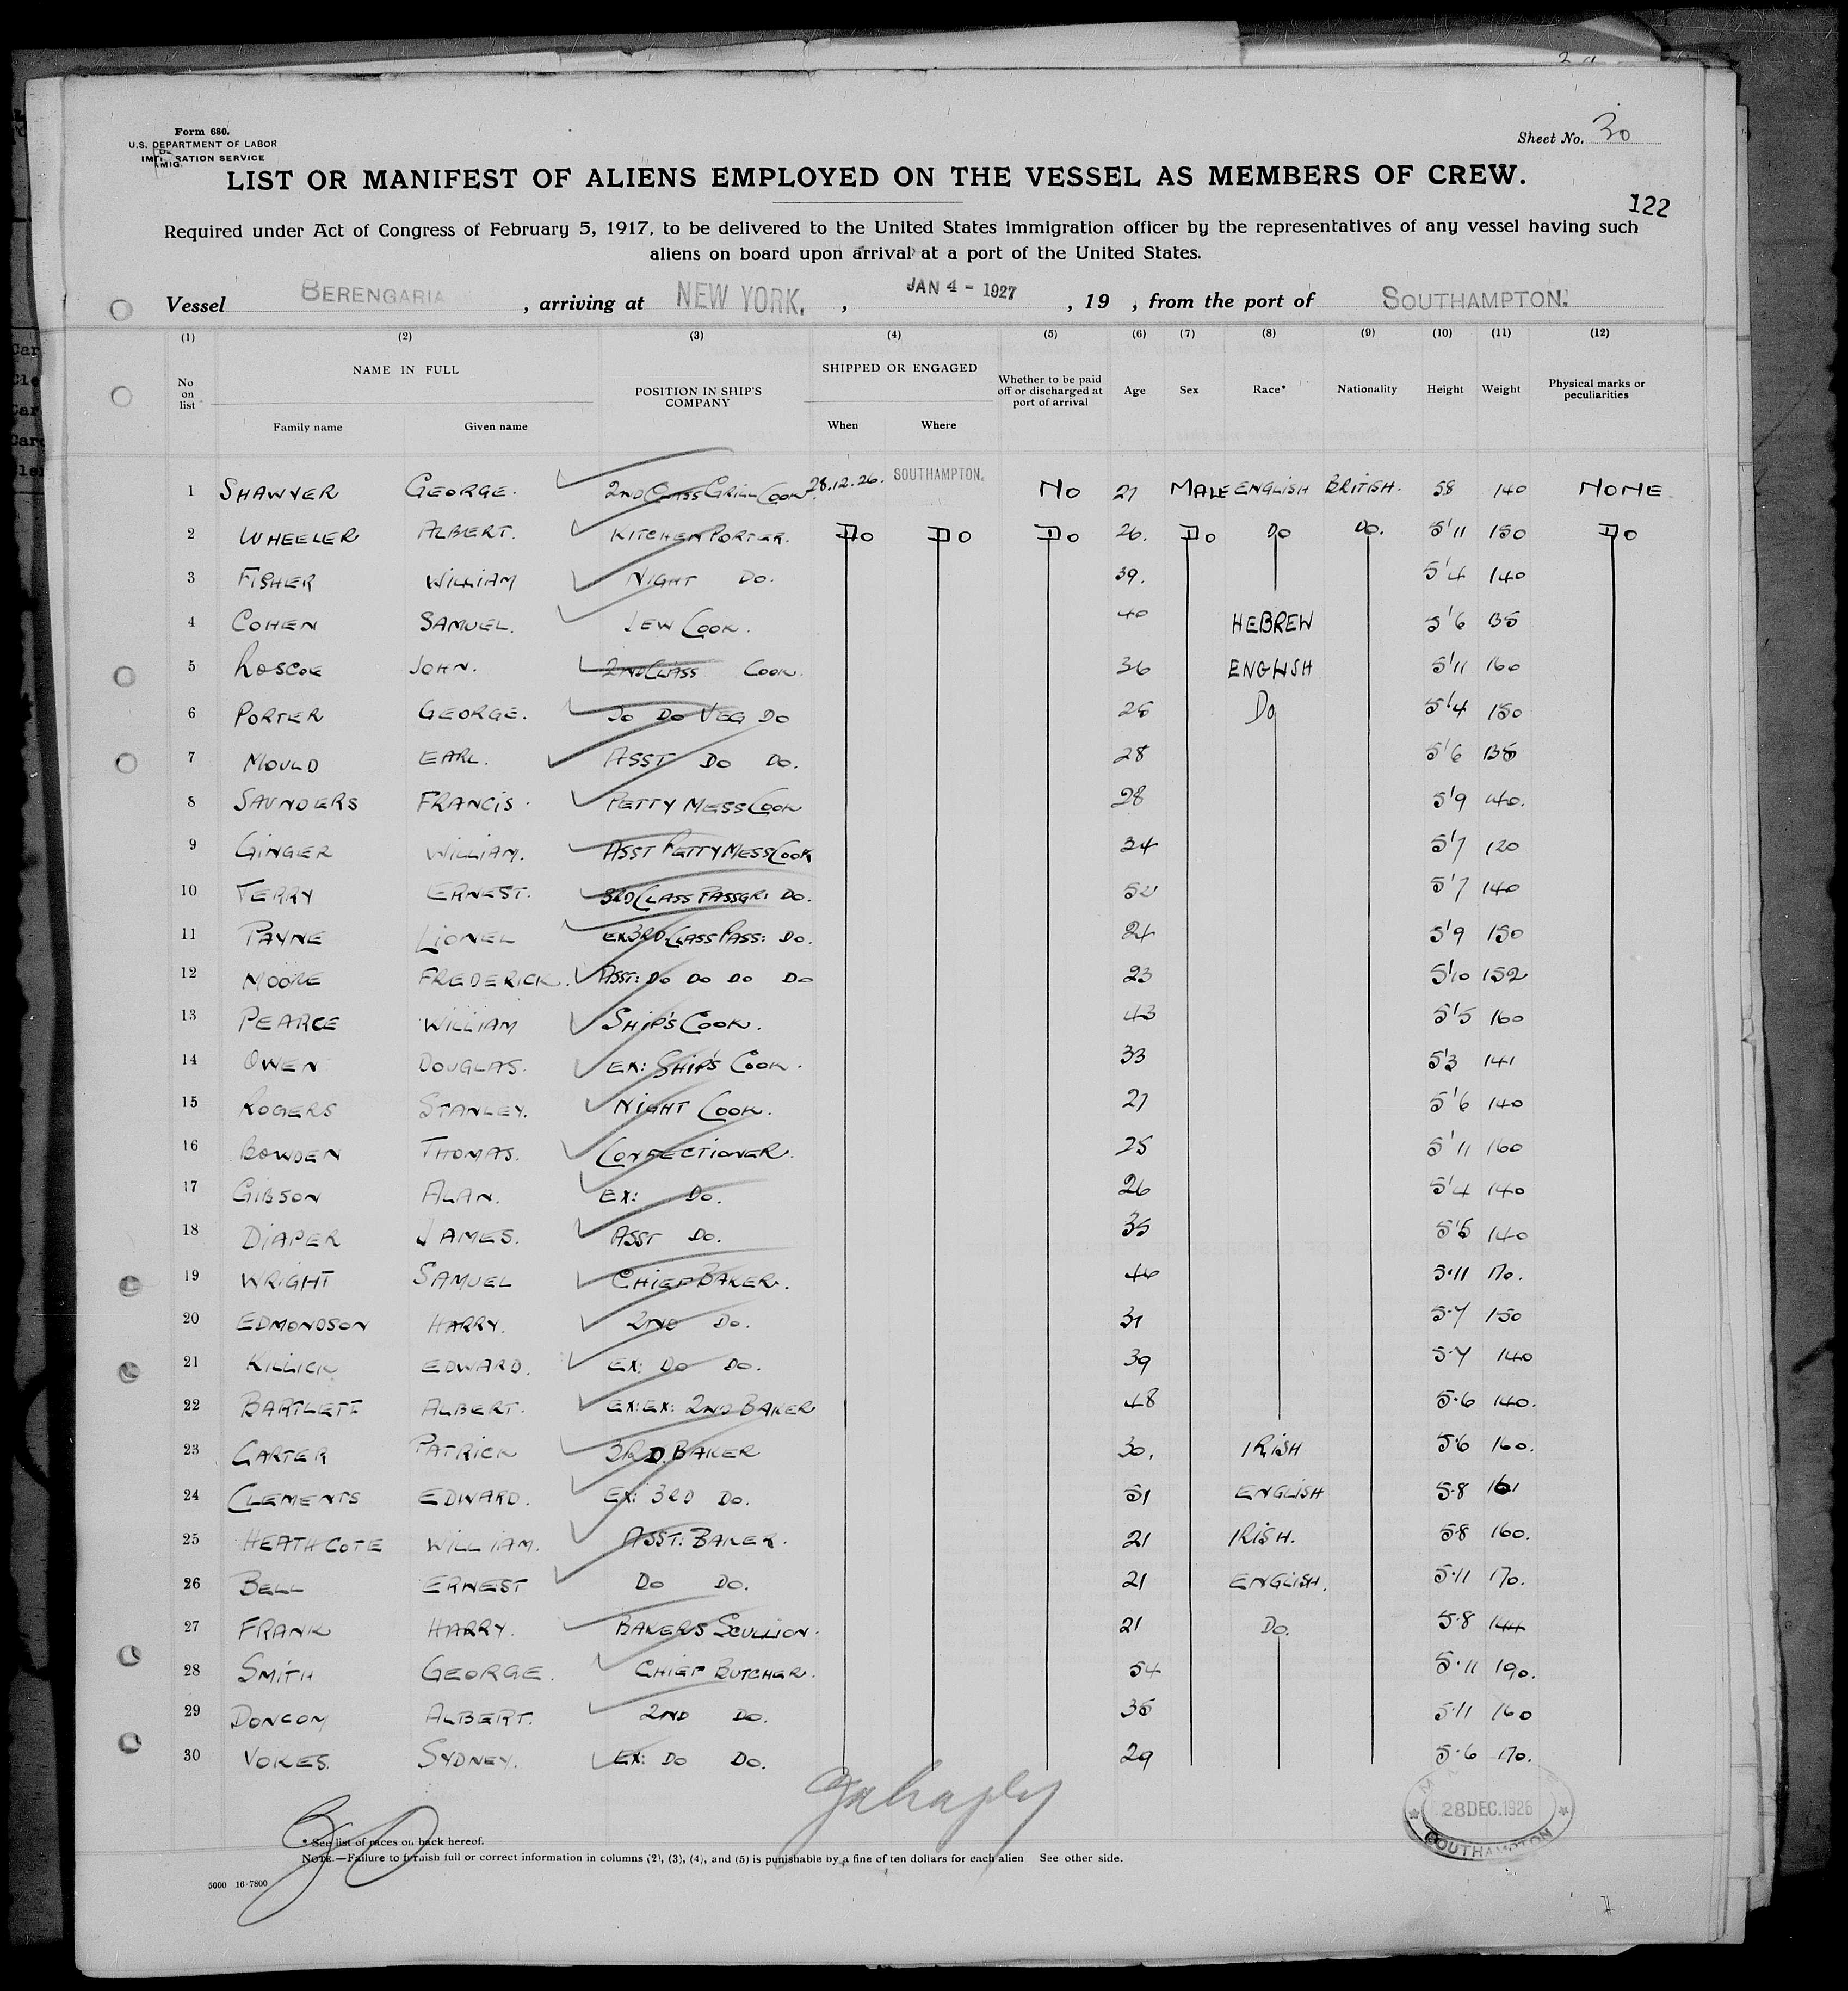 Form 680.
U.S. DEPARTMENT OF LABOR
IMMIGRATION SERVICE
Sheet No. 30
LIST OR MANIFEST OF ALIENS EMPLOYED ON THE VESSEL AS MEMBERS OF CREW.
122
Required under Act of Congress of February 5, 1917, to be delivered to the United States immigration officer by the representatives of any vessel having such
aliens on board upon arrival at a port of the United States.
Vessel BERENGARIA, arriving at NEW YORK., JAN 4 - 1927, 19 , from the port of SOUTHAMPTON.
(1) (2) (3) (4) (5) (6) (7) (8) (9) (10) (11) (12)
No on list NAME IN FULL Family name Given name POSITION IN SHIP'S COMPANY SHIPPED OR ENGAGED When Where Whether to be paid off or discharged at port of arrival Age Sex Race* Nationality Height Weight Physical marks or peculiarities
1 SHAWYER GEORGE. 2ND CLASS GRILL COOK. 28.12.26. SOUTHAMPTON. NO 27 MALE ENGLISH BRITISH. 58 140 NONE
2 WHEELER ALBERT. KITCHEN PORTER. DO DO DO 26. DO DO DO. 5'11 150 DO
3 FISHER WILLIAM NIGHT DO. 39. 5'4 140
4 COHEN SAMUEL. JEW COOK. 40 HEBREW 5'6 135
5 ROSCOE JOHN. 2ND CLASS COOK. 36 ENGLISH 5'11 160
6 PORTER GEORGE. DO DO VEG DO 25 DO 5'4 150
7 MOULD EARL. ASST DO DO. 28 5'6 135
8 SAUNDERS FRANCIS. PETTY MESS COOK 28 5'9 140.
9 GINGER WILLIAM. ASST PETTY MESS COOK 34 5'7 120
10 TERRY ERNEST. 3RD CLASS PASSGR: DO. 52 5'7 140
11 PAYNE LIONEL EX 3RD CLASS PASS: DO. 24 5'9 150
12 MOORE FREDERICK. ASST: DO DO DO DO 23 5'10 152
13 PEARCE WILLIAM SHIP'S COOK. 43 5'5 160
14 OWEN DOUGLAS. EX: SHIP'S COOK. 33 5'3 141
15 ROGERS STANLEY. NIGHT COOK. 27 5'6 140
16 BOWDEN THOMAS. CONFECTIONER. 25 5'11 160
17 GIBSON ALAN. EX: DO. 26 5'4 140
18 DIAPER JAMES. ASST DO. 35 5'5 140
19 WRIGHT SAMUEL CHIEF BAKER. 46 5.11 170.
20 EDMONDSON HARRY. 2ND DO. 31 5.7 150
21 KILLICK EDWARD. EX: DO DO. 39 5.7 140
22 BARTLETT ALBERT. EX: EX: 2ND BAKER 48 5.6 140.
23 CARTER PATRICK 3RD. BAKER 30. IRISH 5.6 160.
24 CLEMENTS EDWARD. EX: 3RD DO. 51 ENGLISH 5.8 161
25 HEATHCOTE WILLIAM. ASST: BAKER. 21 IRISH. 5.8 160.
26 BELL ERNEST DO DO. 21 ENGLISH. 5.11 170.
27 FRANK HARRY. BAKERS SCULLION. 21 DO. 5.8 144
28 SMITH GEORGE. CHIEF BUTCHER. 54 5.11 190.
29 DONCOM ALBERT. 2ND DO. 35 5.11 160
30 VOKES. SYDNEY. EX: DO DO. 29 5.6 170.
28 DEC. 1926
SOUTHAMPTON
* See list of races on back hereof.
NOTE.—Failure to furnish full or correct information in columns (2), (3), (4), and (5) is punishable by a fine of ten dollars for each alien See other side.
5000 16-7800